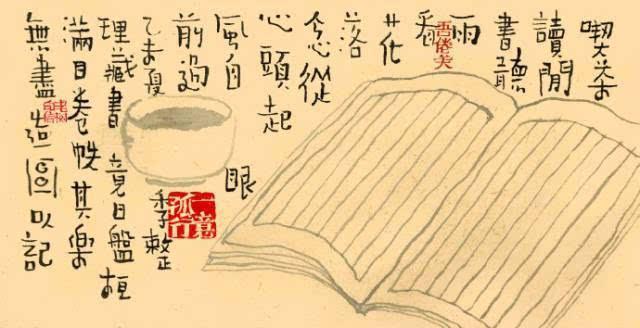 喫茶
讀閒
書聽
雨
看
花
落
念從
心頭起
風自
眼
前過
乙未夏
季整
理藏書竟日盤桓
滿目卷帙其樂
無盡造圖以記
一意孤行